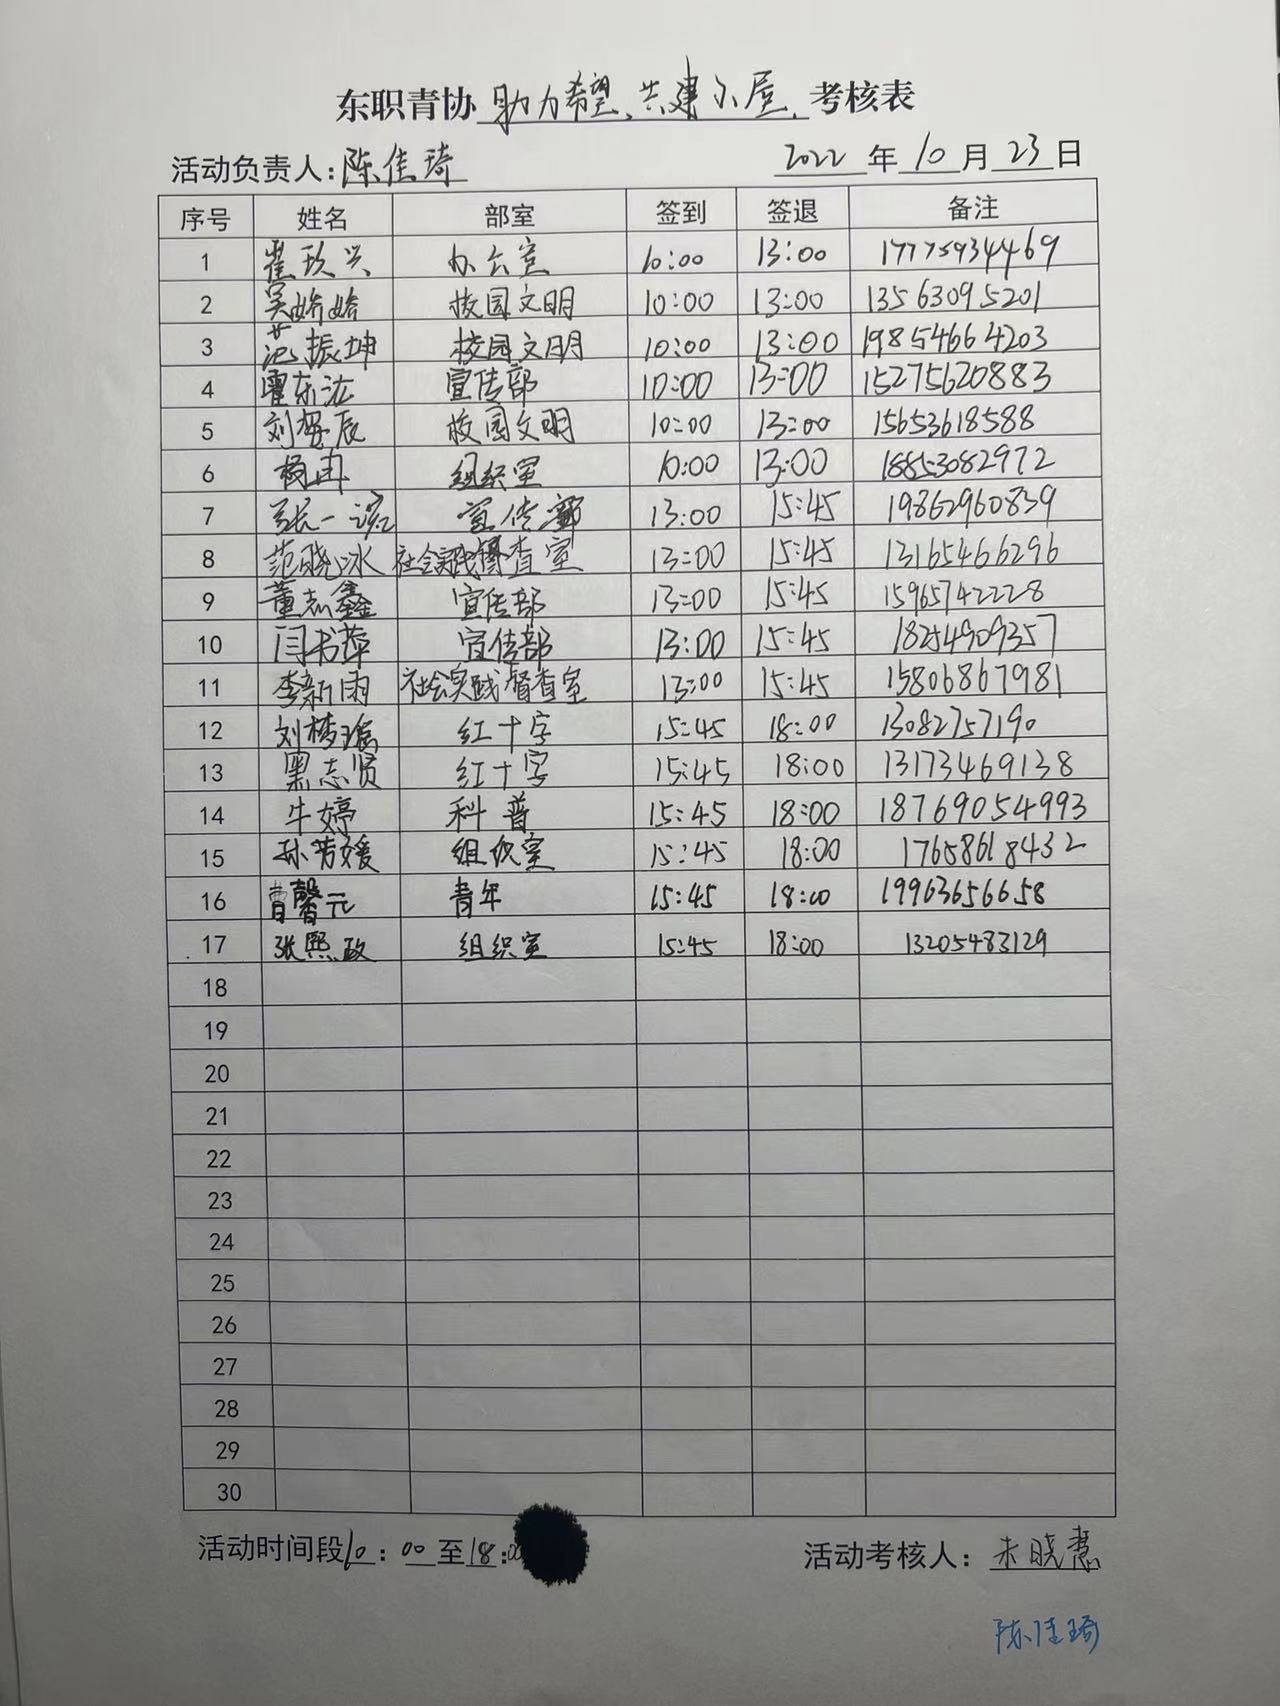 东职青协助力希望、共建小屋考核表
活动负责人:陈佳琦 2022年10月23日
序号 姓名 部室 签到 签退 备注
1 翟玖兴 办公室 10:00 13:00 17775934469
2 吴娇娇 校园文明 10:00 13:00 13563095201
3 范振坤 校园文明 10:00 13:00 19854664203
4 霍东 宣传部 10:00 13:00 15275620883
5 刘辰 校园文明 10:00 13:00 15653618588
6 杨冉 组织室 10:00 13:00 18853082972
7 张一 宣传部 13:00 15:45 19862960839
8 范晓冰 社会实践督查室 13:00 15:45 13165466296
9 董志鑫 宣传部 13:00 15:45 15965742228
10 闫书萍 宣传部 13:00 15:45 18254909357
11 李新雨 社会实践督查室 13:00 15:45 15806867981
12 刘梦瑶 红十字 15:45 18:00 13082757190
13 黑志贤 红十字 15:45 18:00 13173469138
14 牛婷 科普 15:45 18:00 18769054993
15 孙芳媛 组织室 15:45 18:00 17658618432
16 曹馨元 青年 15:45 18:00 19963656658
17 张熙政 组织室 15:45 18:00 13205483129
18
19
20
21
22
23
24
25
26
27
28
29
30
活动时间段10:00至18: 活动考核人:朱晓慧
陈佳琦